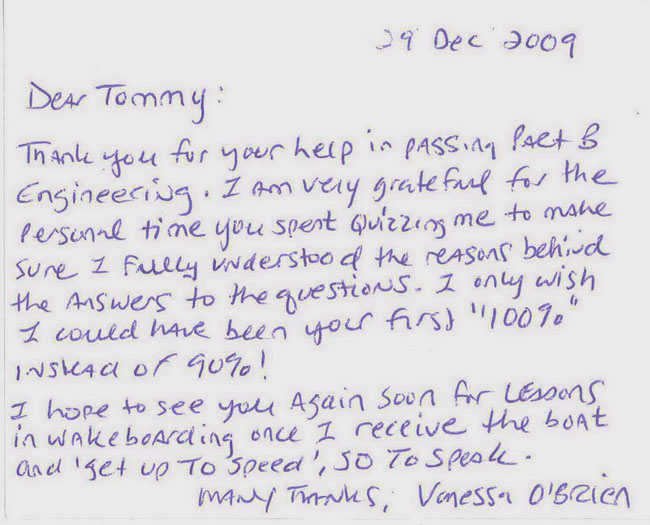 29 Dec 2009
Dear Tommy:
Thank you for your help in passing Part B
Engineering. I am very grateful for the
personal time you spent quizzing me to make
sure I fully understood the reasons behind
the answers to the questions. I only wish
I could have been your first "100%"
instead of 90%!
I hope to see you again soon for lessons
in wakeboarding once I receive the boat
and 'get up to speed', so to speak.
Many Thanks, Vanessa O'Brien